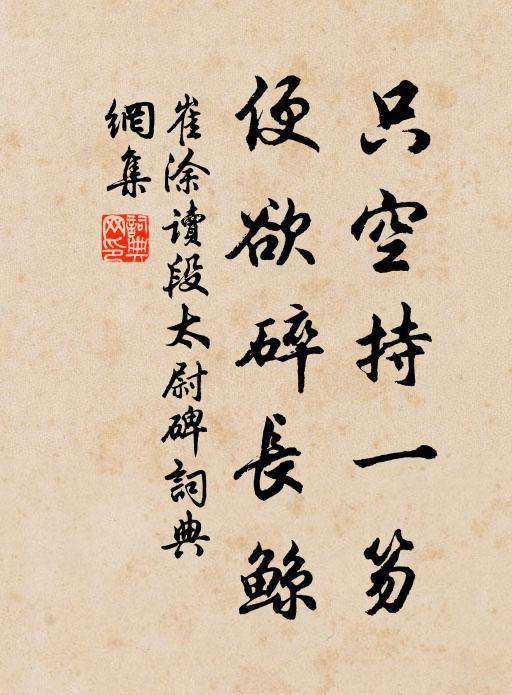 只空持一笏
便欲碎長鲸
崔涂讀段太尉碑詞典
網集
詞典
网印